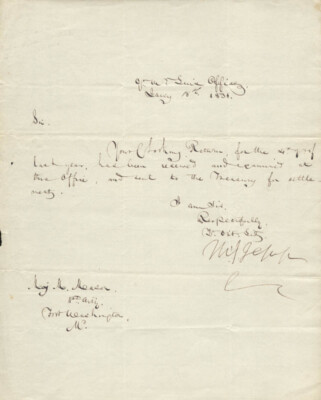 Office,
1831.
Sir,
Your Clothing Returns, for the 4th qr of
last year, has been received and examined at
this Office, and sent to the Treasury for settle-
ment.
I am Sir,
Respectfully
Yr. Obt. Servt.
Maj. M. Mason
1st Arty.
Fort Washington
Md.